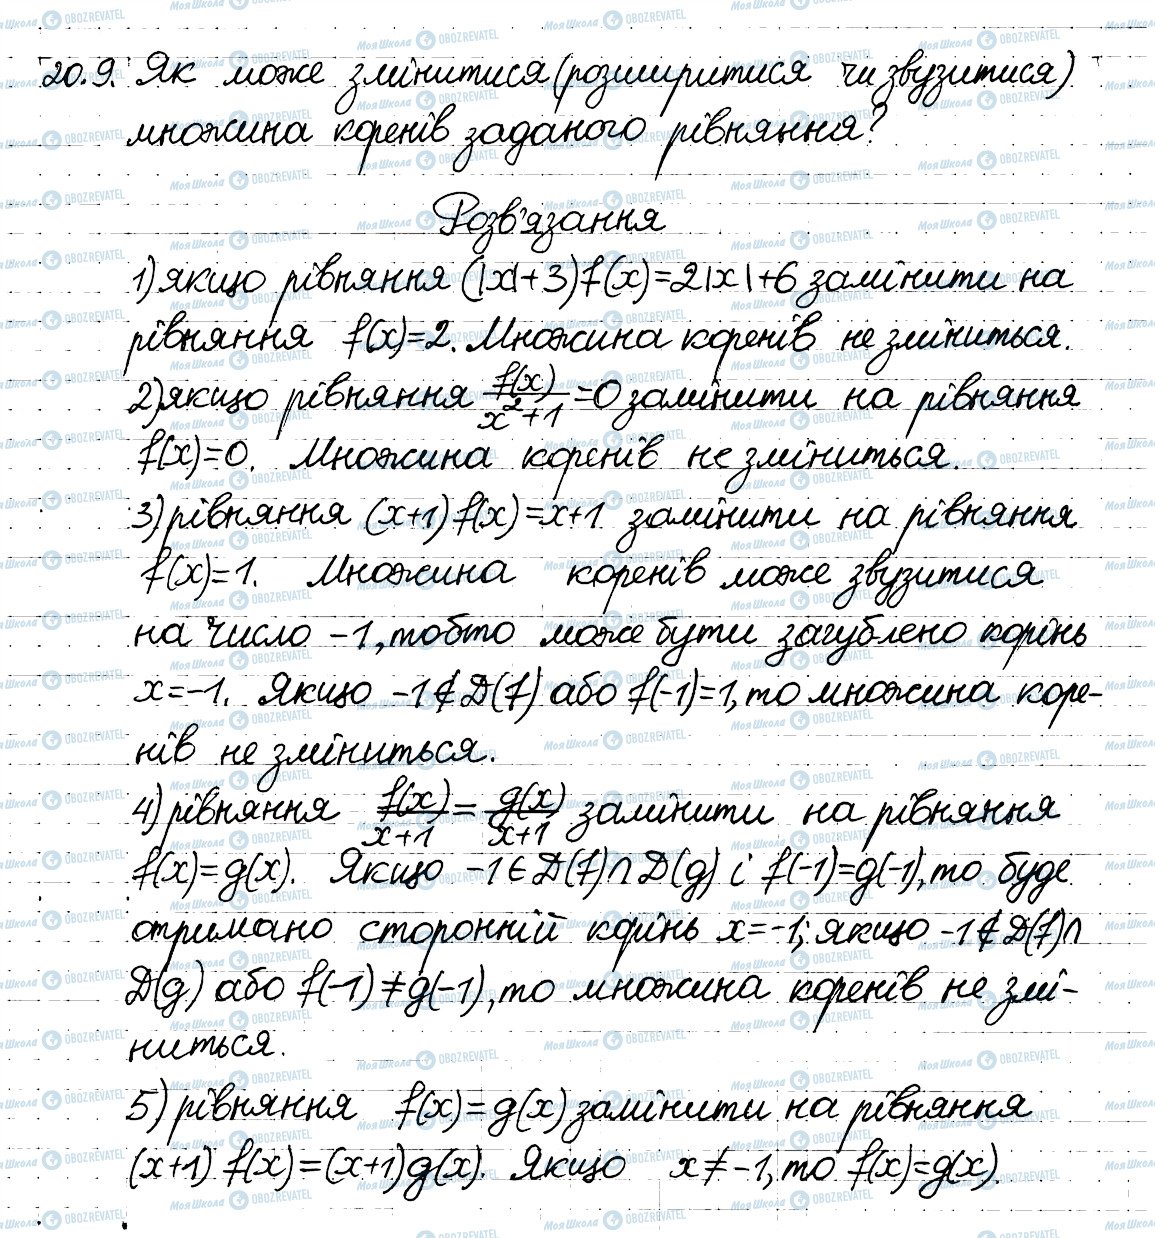 20.9. Як може змінитися (розширитися чи звузитися)
множина коренів заданого рівняння?
Розв'язання
1) якщо рівняння (|x|+3)f(x)=2|x|+6 замінити на
рівняння f(x)=2. Множина коренів не зміниться.
2) якщо рівняння f(x)/(x²+1)=0 замінити на рівняння
f(x)=0. Множина коренів не зміниться.
3) рівняння (x+1)f(x)=x+1 замінити на рівняння
f(x)=1. Множина коренів може звузитися
на число -1, тобто може бути загублено корінь
x=-1. Якщо -1∉D(f) або f(-1)=1, то множина коре-
нів не зміниться.
4) рівняння f(x)/(x+1)=g(x)/(x+1) замінити на рівняння
f(x)=g(x). Якщо -1∈D(f)∩D(g) і f(-1)=g(-1), то буде
отримано сторонній корінь x=-1; якщо -1∉D(f)∩
D(g) або f(-1)≠g(-1), то множина коренів не змі-
ниться.
5) рівняння f(x)=g(x) замінити на рівняння
(x+1)f(x)=(x+1)g(x). Якщо x≠-1, то f(x)=g(x).
МояШкола OBOZREVATEL